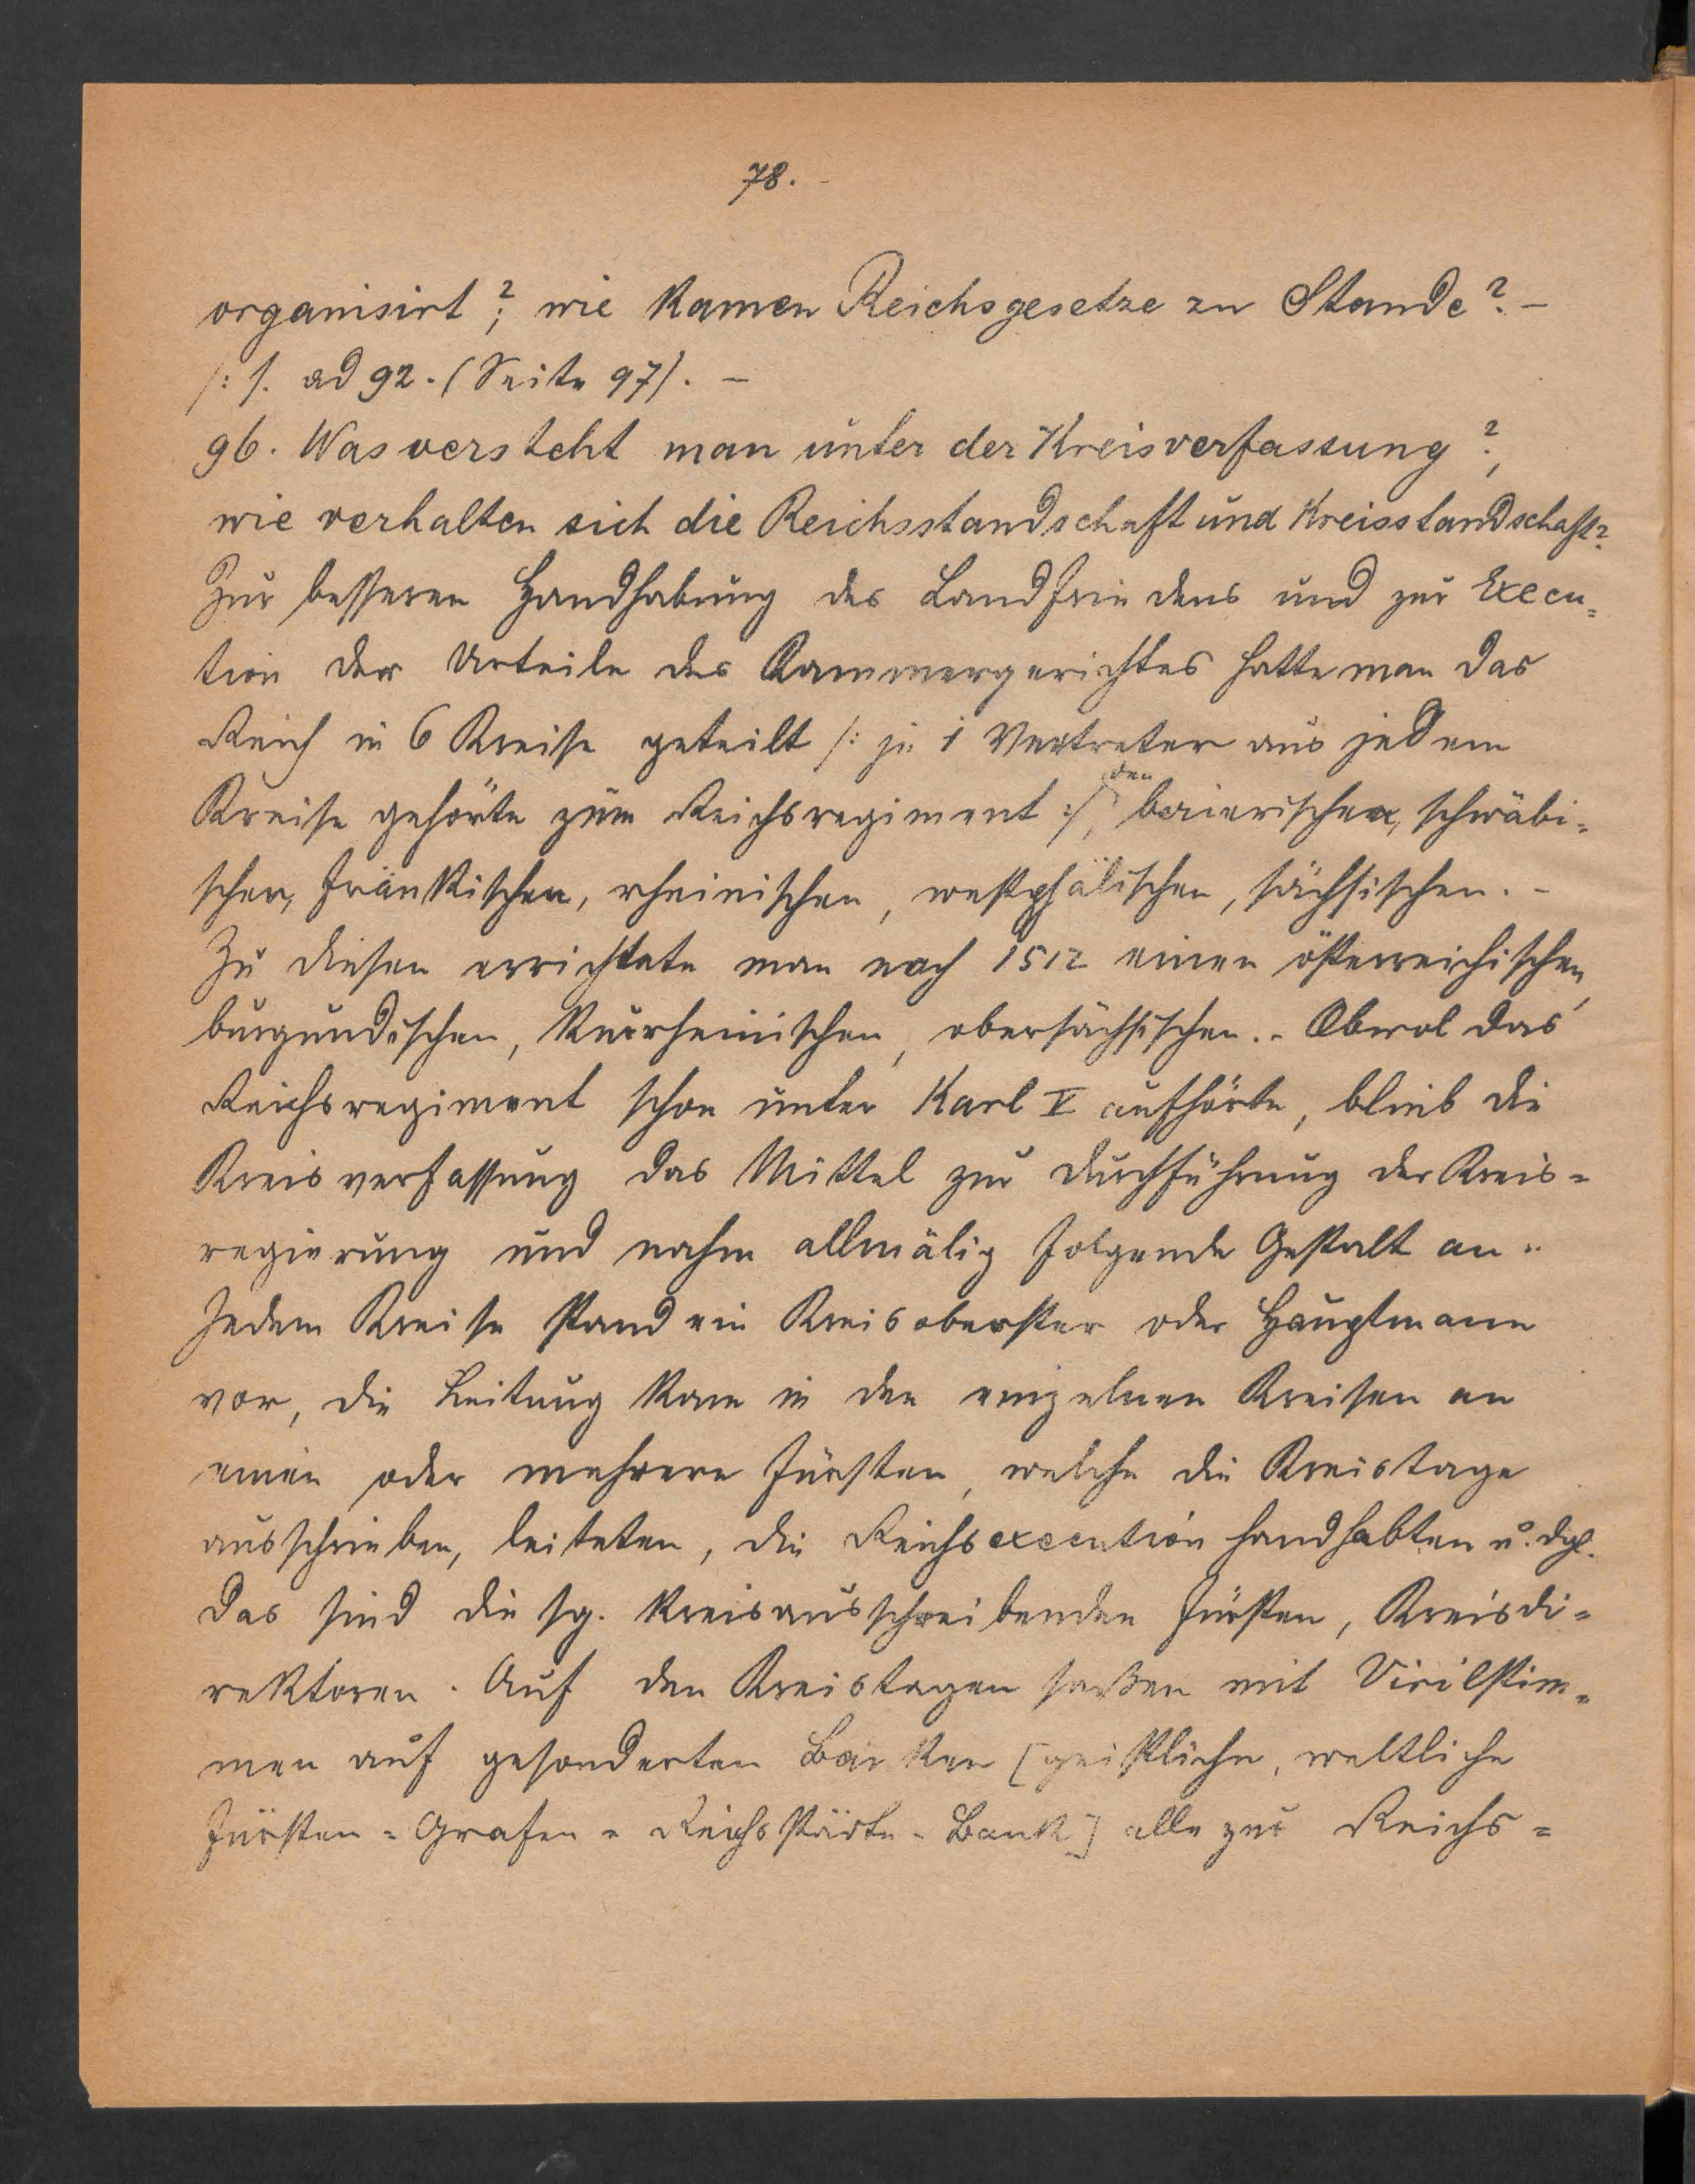 78. -
organisirt ?; wie kamen Reichsgesetze zu Stande? -
/: s. ad 92. (Seite 97). -
96. Was versteht man unter der Kreisverfassung?,
wie verhalten sich die Reichsstandschaft und Kreisstandschaft?
Zur besseren Handhabung des Landfriedens und zur Execu=
tion der Urteile des Kammergerichtes hatte man das
Reich in 6 Kreise geteilt /: je 1 Vertreter aus jedem
Kreise gehörte zum Reichsregiment :/, den baierischen, schwäbi=
schen, fränkischen, rheinischen, westphälischen, sächsischen. -
Zu diesen errichtete man nach 1512 einen österreichischen,
burgundischen, kurrheinischen, obersächsischen. - Obwol das
Reichsregiment schon unter Karl V aufhörte, blieb die
Kreisverfassung das Mittel zur Durchführung der Kreis=
regierung und nahm allmälig folgende Gestalt an:
Jedem Kreise stand ein Kreisoberster oder Hauptmann
vor, die Leitung kam in den einzelnen Kreisen an
einen oder mehrere Fürsten, welche die Kreistage
ausschrieben, leiteten, die Reichsexecution handhabten u. dgl.
Das sind die sg. kreisausschreibenden Fürsten, Kreisdi=
rektoren. Auf den Kreistagen saßen mit Virilstim=
men auf gesonderten Bänken [geistliche, weltliche
Fürsten = Grafen = Reichsstädte - Bank] alle zur Reichs=